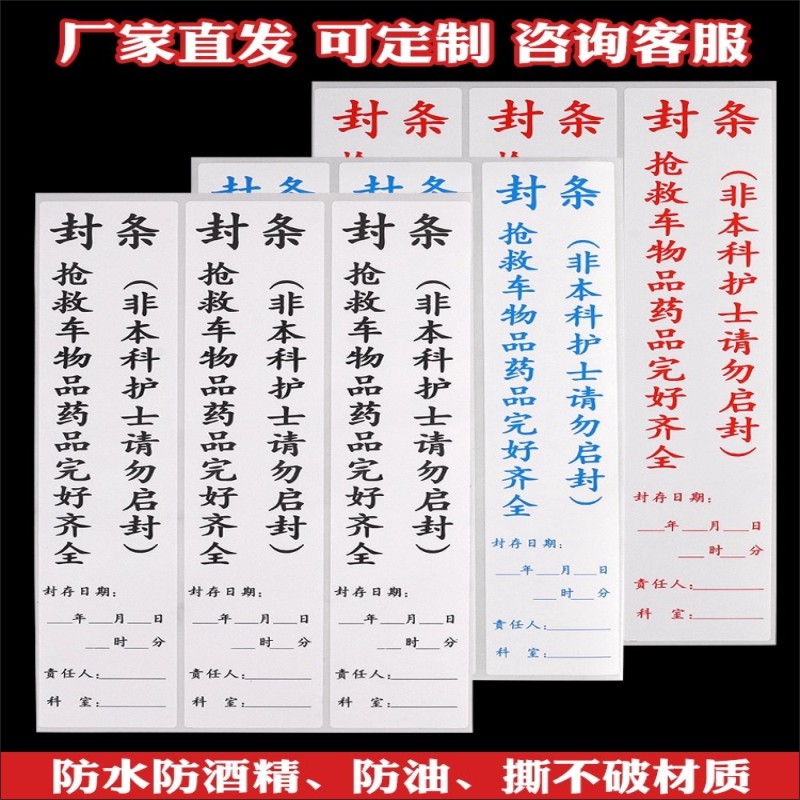 厂家直发 可定制 咨询客服
封条
抢救车物品药品完好齐全
(非本科护士请勿启封)
封存日期:
___年___月___日
___时___分
責任人:
科 室:
封条
抢救车物品药品完好齐全
(非本科护士请勿启封)
封存日期:
___年___月___日
___时___分
責任人:
科 室:
封条
抢救车物品药品完好齐全
(非本科护士请勿启封)
封存日期:
___年___月___日
___时___分
責任人:
科 室:
封条
封条
封条
抢救车物品药品完好齐全
(非本科护士请勿启封)
封存日期:
___年___月___日
___时___分
責任人:
科 室:
封条
封条
封条
抢救车物品药品完好齐全
(非本科护士请勿启封)
封存日期:
___年___月___日
___时___分
責任人:
科 室:
防水防酒精、防油、撕不破材质